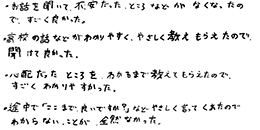 ・お話を聞いて、不安だった、ところなどがなくなったの
で、すごく良かった。
・高校の話などがわかりやすく、やさしく教えもらえたので、
聞けて良かった。
・心配だったところを、わかるまで教えてもらえたので、
すごくわかりやすかった。
・途中で「ここまで、良いですか？」などやさしく言ってくれたので
わからないことが、全然なかった。